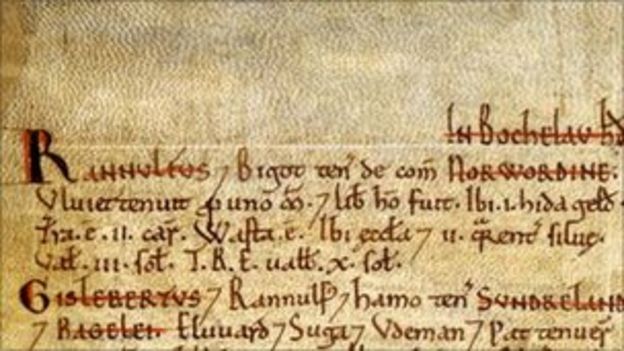 In Bochelau hd
Rannulfus ⁊ Bigot ten̄ de com̄ Norwordine.
Vluiet tenuit ꝓ uno m̄. ⁊ lib̄ hō fuit. Ibi.i. hida geld̄.
Tr̄a.ē.ii. car̄. Wasta.ē. Ibi eccl̄a ⁊ ii. qrent̄ siluę.
Val̄.iii.sol̄. T.R.E. ualb̄.x.sol̄.
Gislebertus ⁊ Rannulf ⁊ hamo ten̄ Sundreland
⁊ Bagelei. Eluuard ⁊ Suga ⁊ Vdeman ⁊ Pat tenuer